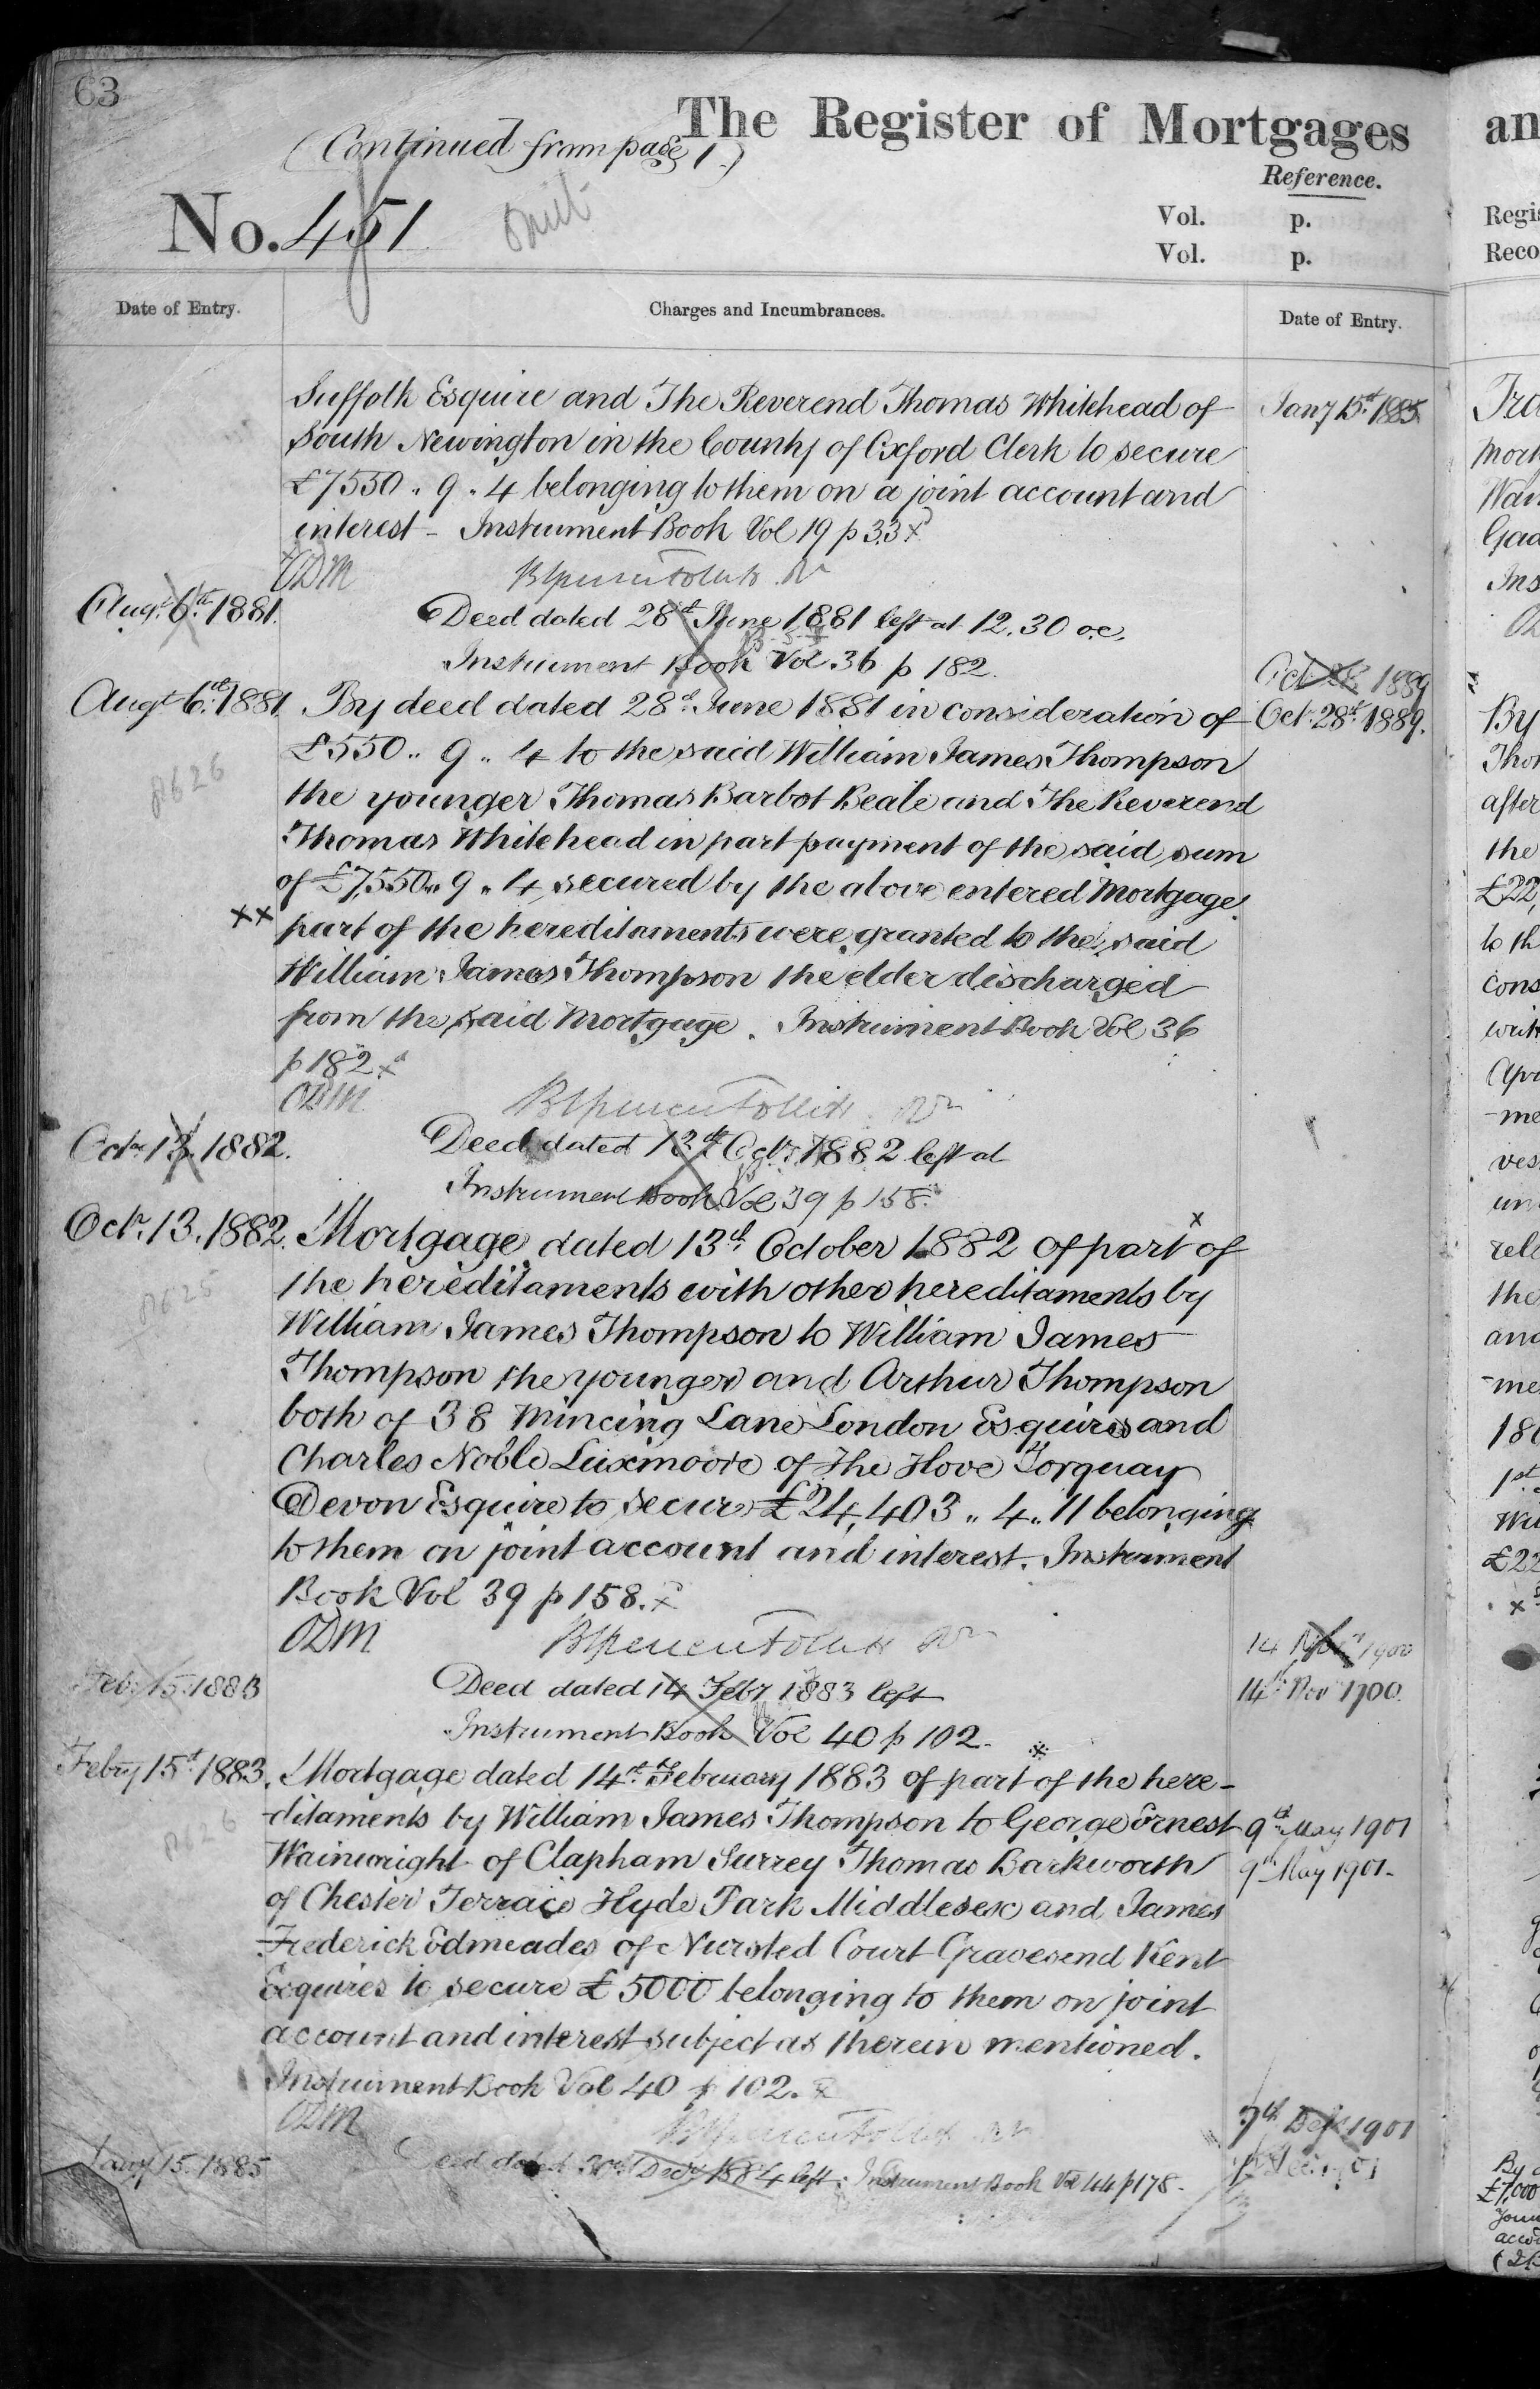 63
The Register of Mortgages
(Continued from page 1.)
Reference.
No. 451
Omit
Vol. p.
Vol. p.
Date of Entry.
Charges and Incumbrances.
Date of Entry.
Suffolk Esquire and The Reverend Thomas Whitehead of
Jany 15th 1885
South Newington in the County of Oxford Clerk to secure
£7550 „ 9 „ 4 belonging to them on a joint account and
interest - Instrument Book Vol 19 p 33 x
ODM
Augt. 6th 1881.
Deed dated 28th June 1881 left at 12.30 o.c.
Instrument Book Vol. 36 p 182.
Oct. 28 1889
Augt 6th 1881.
By deed dated 28th June 1881 in consideration of
Oct. 28th 1889.
£550 „ 9 „ 4 to the said William James Thompson
the younger Thomas Barbot Beale and The Reverend
Thomas Whitehead in part payment of the said sum
of £7,550 „ 9 „ 4 secured by the above entered Mortgage
xx part of the hereditaments were granted to the said
William James Thompson the elder discharged
from the said Mortgage. Instrument Book Vol 36
p 182. x
ODM
Octr 13. 1882.
Deed dated 13th Octr. 1882 left at
Instrument Book Vol 39 p 158.
Octr. 13. 1882.
Mortgage dated 13th October 1882 of part x of
the hereditaments with other hereditaments by
William James Thompson to William James
Thompson the younger and Arthur Thompson
both of 38 Mincing Lane London Esquires and
Charles Noble Luxmoore of The Hove Torquay
Devon Esquire to secure £24,403 „ 4 „ 11 belonging
to them on joint account and interest. Instrument
Book Vol 39 p 158. x
ODM
14 1900
Feby 15. 1883
Deed dated 14 Feby 1883 left
14th Nov 1900.
Instrument Book Vol 40 p 102.
Feby 15th 1883.
Mortgage dated 14th February 1883 of part of the here-
ditaments by William James Thompson to George Ernest
9th May 1901
Wainwright of Clapham Surrey Thomas Barkworth
9th May 1901.
of Chester Terrace Hyde Park Middlesex and James
Frederick Edmeades of Nursted Court Gravesend Kent
Esquires to secure £5000 belonging to them on joint
account and interest subject as therein mentioned.
Instrument Book Vol 40 p 102.
ODM
7th Dec 1901
Jany 15. 1885
Deed dated 30th Decr 1884 left: Instrument Book Vol 44 p 178.